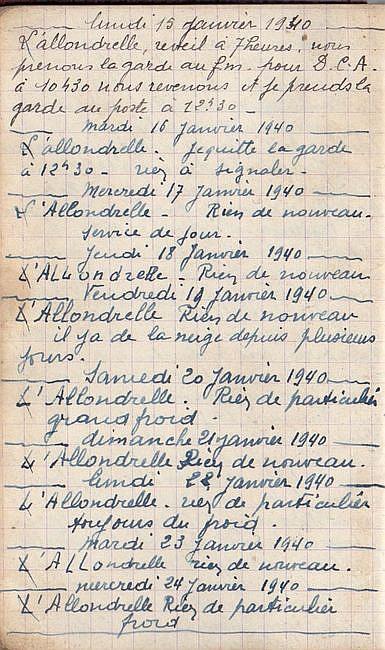 lundi 15 janvier 1940
L'allondrelle, reveil à 7 heures, nous
prenons la garde au fm. pour D.C.A.
à 10h30 nous revenons et je prends la
garde au poste à 12h30 -
Mardi 16 Janvier 1940
L'allondrelle. Je quitte la garde
à 12h30 - rien à signaler -
Mercredi 17 Janvier 1940
L'Allondrelle - Rien de nouveau -
Service de jour.
Jeudi 18 Janvier 1940
L'Allondrelle. Rien de nouveau
Vendredi 19 Janvier 1940
L'Allondrelle Rien de nouveau
il ya de la neige depuis plusieurs
jours.
Samedi 20 Janvier 1940
L'Allondrelle. Rien de particulier
grand froid.
dimanche 21 Janvier 1940
L'Allondrelle Rien de nouveau.
lundi 22 Janvier 1940
L'Allondrelle. rien de particulier
toujours du froid.
Mardi 23 Janvier 1940
L'Allondrelle rien de nouveau.
mercredi 24 Janvier 1940
L'Allondrelle Rien de particulier
froid